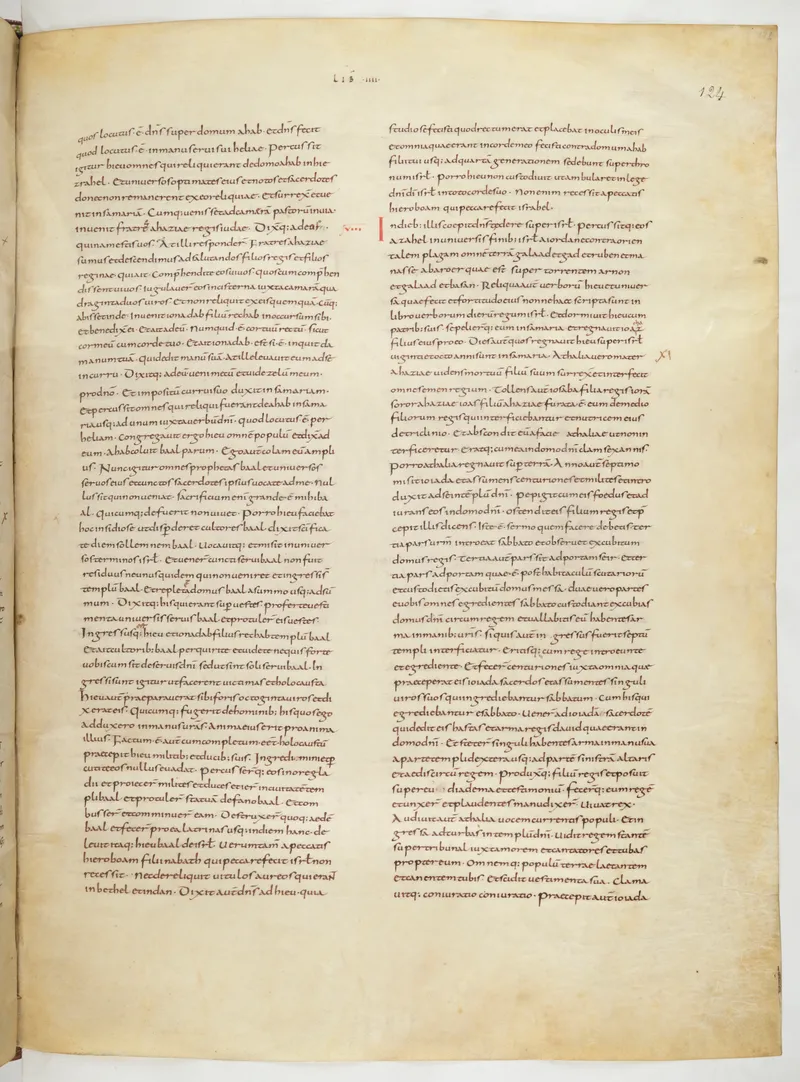 LIB · IIII ·
124
quos locutus · ē · dn̄s super domum ahab · Et dn̄s fecit
quod locutus · ē · in manu serui sui heliae · Percussit
igitur hieu omnes qui reliqui erant de domo ahab in hie
zrahel · Et uniuersos optimates eius et notos et sacerdotes
donec non remanerent ex eo reliquiae · Et surrexit et ue
nit in samariā · Cumq; uenisset ad camerā pastorū in uia ·
inuenit fratrēs ahaziae regis iudae · Dixitq; ad eos ·
quinam estis uos · At illi responder̄ · Fratres ahaziae
sumus et descendimus ad salutandos filios regis et filios
reginae · qui ait · Comp̄hendite eos uiuos · quos cum comp̄hen
dissent uiuos · iugulauer̄ eos in cisterna iuxta camerā · qua
draginta duos uiros · Et non reliquit ex eis quemquā · Cūq;
abisset inde · Inuenit ionadab filiū rechab in occursum sibi ·
et benedixit ei · Et ait ad eū · Numquid · ē · cor tuū rectū · sicut
cor meū cum corde tuo · Et ait ionadab · est · Si · ē · inquit da
manum tuā · Qui dedit manū suā · At ille leuauit eum ad sē
in currū · Dixitq; ad eū ueni mecū et uide zelū meum ·
pro dno · Et impositū currui suo duxit in samariam ·
Et percussit omnes qui reliqui fuerant de ahab in sama
ria usq; ad unum iuxta uerbū dnī · quod locutus · ē · per
heliam · Congregauit ergo hieu omnē populū et dixit ad
eum · Ahab coluit baal parum · Ego autē colam eū ampli
us · Nunc igitur omnes prophetas baal et uniuersos
seruos eius et cunctos sacerdotes ipsius uocate ad me · Nul
lus sit qui non ueniat · sacrificium enī grande · ē · mihi ba
al · Quicumq; defuerit non uiuet · Porro hieu faciebat
hoc insidiose ut disp̄deret cultores baal · dixit sc̄ifica
te diem sollemnem baal · Uocauitq; et misit in uniuer
sos terminos isrl̄ · Et uener̄ cuncti serui baal non fuit
residuus ne unus quidem qui non ueniret et ingressi s̄
templū baal · Et repleta domus baal a summo usq; ad sū
mum · Dixitq; his qui erant sup̄ uestes · proferte uesti
menta uniuersis seruis baal · et protuler̄ eis uestes ·
Ingressusq; hieu et ionadab filius rechab templū baal
Et ait cultorib; baal perquirite et uidete ne quis forte
uobiscum sit de seruis dnī · sed ut sint soli serui baal · In
gressi sunt igitur ut facerent uictimas et holocausta
Hieu autē praeparauerat sibi foris octoginta uiros et di
xerat eis · Quicumq; fugerit de hominib; his quos ego
adduxero in manus uras̄ · Anima eius erit pro anima
illius · Factum · ē · autē cum completum eēt holocaustū
praecepit hieu militib; et ducib; suis · Ingredimini et p̄
cutite eos nullus euadat · Percusser̄q; eos in ore gla
dii et proiecer̄ milites et duces et ier̄ in ciuitatē tem
pli baal · et protuler̄ statuā de fano baal · Et com
busser̄ et comminuer̄ eam · Destruxer̄ quoq; aedē
baal et fecer̄ pro ea lacrinas usq; in diem hanc · de
leuit itaq; hieu baal de isrl̄ · Uerumtam̄ a peccatis
hieroboam filii nabath qui peccare fecit isrl̄ non
recessit · Nec dereliquit uitulos aureos qui eraN̄
in bethel et in dan · Dixit autē dn̄s ad hieu · quia
studiose fecisti quod rectum erat et placebat in oculis meis
et omnia quae erant in corde meo fecisti contra domum ahab
filii tui usq; ad quartā generationem sedebunt super thro
num isrl̄ · Porro hieu non custodiuit ut ambularet in lege
dnī dī isrl̄ in toto corde suo · Non enim recessit a peccatis
hieroboam qui peccare fecit israhel ·
In dieb; illis coepit dn̄s tedere super isrl̄ · Percussitq; eos
azahel in uniuersis finib; isrl̄ a iordane contra orien
talem plagam omnē terrā galaad et gad et ruben et ma
nasse · ab aroer quae est super torrentem arnon
et galaad et basan · Reliqua autē uerborū hieu et uniuer
sa quae fecit et fortitudo eius nonne haec scripta sunt in
libro uerborum dierū regum isrl̄ · Et dormiuit hieu cum
patrib; suis · sepelierq; eum in samaria · et regnauit ioaz
filius eius pro eo · Dies autē quos regnauit hieu super isrl̄
uiginti et octo anni sunt in samaria · Athalia uero mater
XI
ahaziae uidens mortuū filiū suum surrexit et interfecit
omne semen regium · Tollens autē iosaba filia regis iorā
soror ahaziae ioas filiū ahaziae furata · ē · eum de medio
filiorum regis qui interficiebantur et nutricem eius
de triclinio · Et abscondit eū a facie athaliae ut non in
terficeretur · Eratq; cum ea in domo dnī clam sex annis ·
Porro athalia regnauit sup̄ terrā · Anno autē septimo
misit ioiada et assumens centuriones et milites et intro
duxit ad se in tēplū dnī · Pepigit cum eis foedus et ad
iurans eos in domo dnī · ostendit eis filium regis et p̄
cepit illis dicens · Iste · ē · sermo quem facere debetis · ter
tia pars urm̄ introeat sabbato et obseruet excubitum
domus regis · Tertia autē pars sit ad portam seir · Et ter
tia pars ad portam quae · ē · post habitaculū scutariorū
et custodietis excubitū domus messa · duae uero partes
e uobis omnes egredientes sabbato custodiant excubias
domus dnī circum regem et uallabitis eū habentes ar
ma in manib; uris̄ · si quis autē ingressus fuerit septū
templi interficiatur · Eritisq; cum rege introeunte
et egrediente · Et fecer̄ centuriones iuxta omnia quae
praeceperat eis ioiada sacerdos et assumentes singuli
uiros suos qui ingrediebantur sabbatum · Cum his qui
egrediebantur e sabbato · Uener̄ ad ioiadā sacerdotē
qui dedit eis hastas et arma regis dauid quae erant in
domo dnī · Et steter̄ singuli habentes arma in manu sua
a parte templi dextera usq; ad partē sinisterā altaris
et aedis circū regem · Produxq; filiū regis et posuit
super eū · diadema et testimoniū · fecerq; eum regē
et unxer̄ et plaudentes manu dixer̄ · Uiuat rex ·
Audiuit autē athalia uocem currentis populi · Et in
gressā ad turbas in templū dnī · Uidit regem stantē
sup̄ tribunal iuxta morem et cantatores et tubas
prop̄ter eum · Omnemq; populū terrae laetantem
et canentem tubis · Et scidit uestimenta sua · Clama
uitq; coniuratio coniuratio · Praecepit autē ioiada